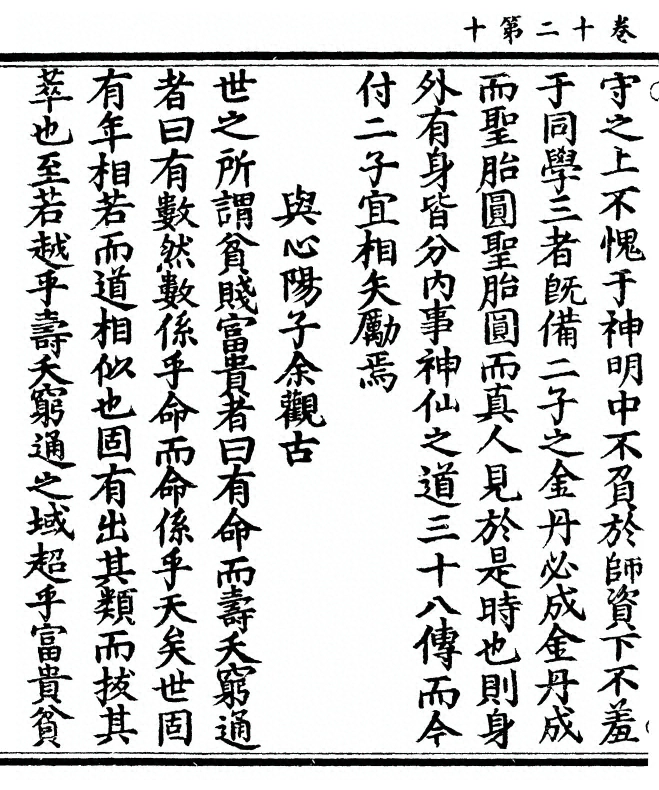 卷十二第十
守之上不愧于神明中不負於師資下不羞
于同學三者旣備二子之金丹必成金丹成
而聖胎圓聖胎圓而真人見於是時也則身
外有身皆分內事神仙之道三十八傳而今
付二子宜相矢勵焉
與心陽子余觀古
世之所謂貧賤富貴者曰有命而壽夭窮通
者曰有數然數係乎命而命係乎天矣世固
有年相若而道相似也固有出其類而拔其
萃也至若越乎壽夭窮通之域超乎富貴貧